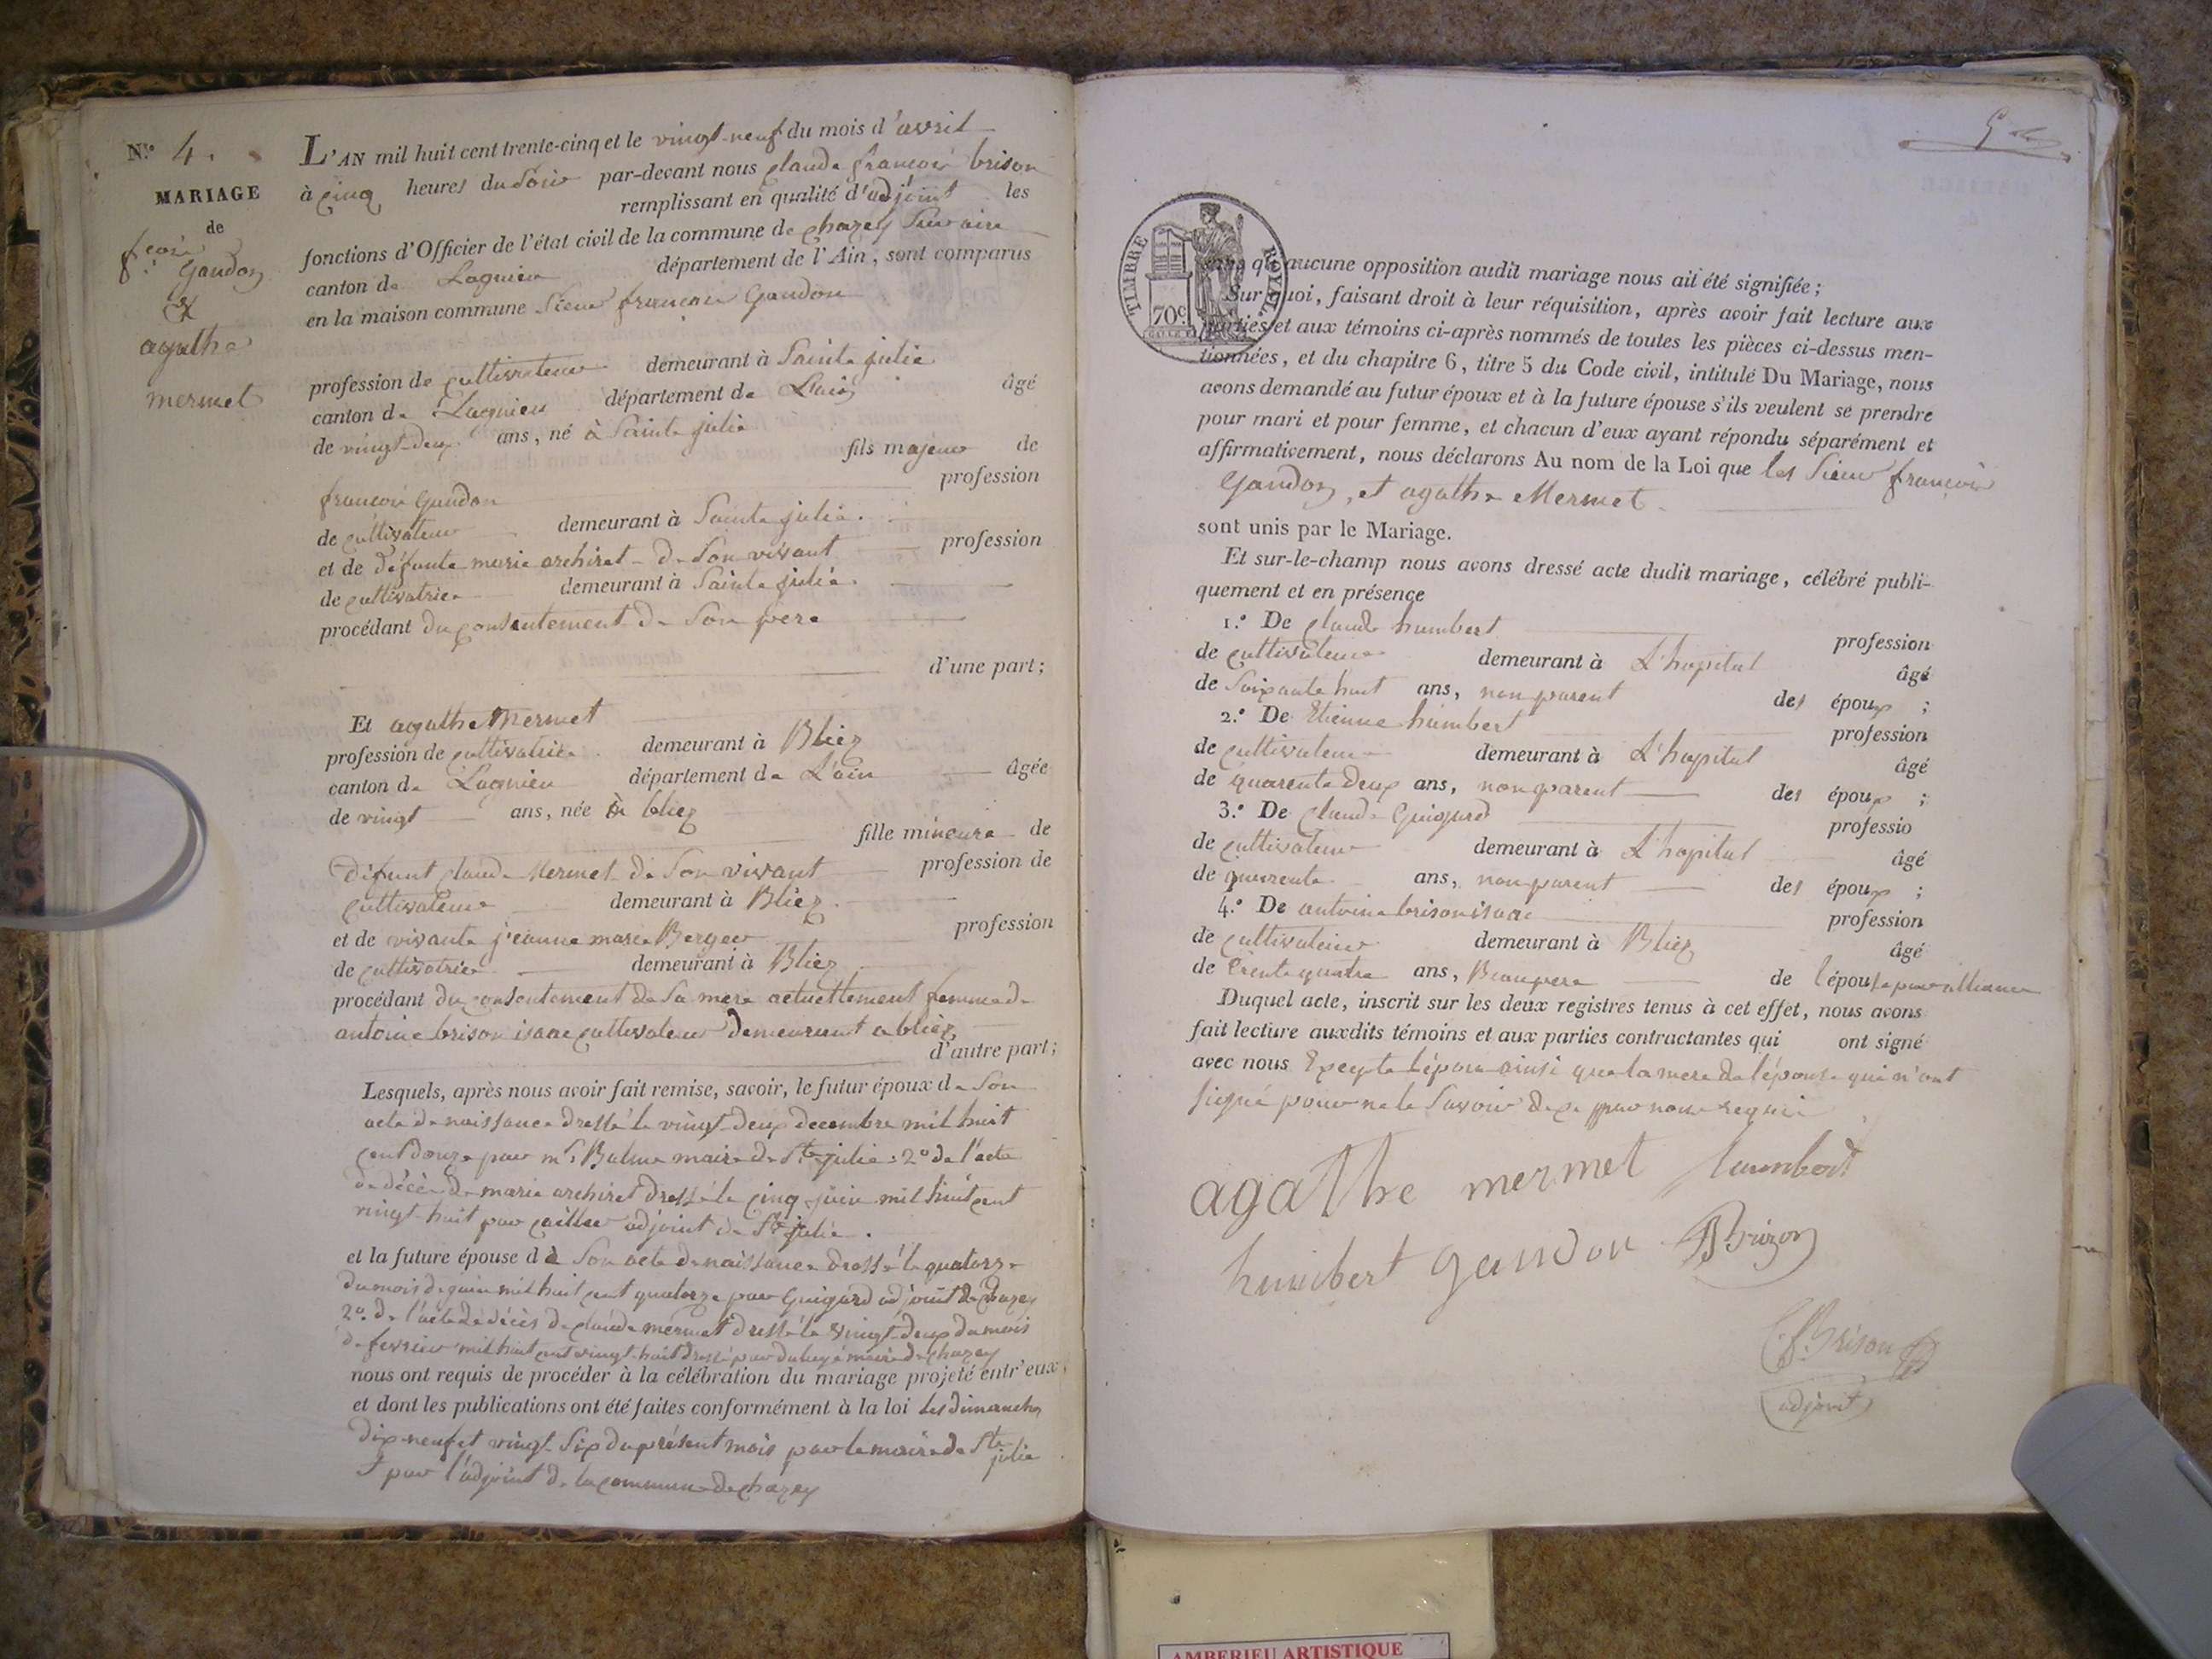 N.º 4.
MARIAGE
de
f.cois
Gaudon
&
agathe
mermet
L'AN mil huit cent trente-cinq et le vingt-neuf du mois d'avril
à cinq heures du soir par-devant nous claude francois brison
remplissant en qualité d'adjoint les
fonctions d'Officier de l'état civil de la commune de chazey sur ain
canton de Lagnieu département de l'Ain, sont comparus
en la maison commune sieur francois Gaudon
profession de cultivateur demeurant à Sainte julie
canton de Lagnieu département de L'ain âgé
de vingt-deux ans, né à Sainte julie
fils majeur de
francois Gaudon profession
de cultivateur demeurant à Sainte julie.
et de défunte marie archiret de son vivant profession
de cultivatrice demeurant à Sainte julie.
procédant du consentement de son pere
d'une part;
Et agathe Mermet
profession de cultivatrice demeurant à Bliez
canton de Lagnieu département de L'ain âgée
de vingt ans, née à bliez
fille mineure de
défunt claude Mermet de son vivant profession de
cultivateur demeurant à Bliez.
et de vivante jeanne marie Berger profession
de cultivatrice demeurant à Bliez
procédant du consentement de sa mere actuellement femme de
antoine brison isaac cultivateur demeurant a bliez
d'autre part;
Lesquels, après nous avoir fait remise, savoir, le futur époux de son
acte de naissance dressé le vingt-deux decembre mil huit
cent douze par m.r Balme maire de Ste julie: 2º de l'acte
de décès de marie archiret dressé le cinq juin mil huit cent
vingt-huit par adjoint de Ste julie.
et la future épouse de son acte de naissance dressé le quatorze
du mois de juin mil huit cent quatorze par Guigard adjoint de Chazey
2º. de l'acte de décès de claude mermet dressé le vingt-deux du mois
de fevrier mil huit cent vingt-huit dressé par maire de chazey
nous ont requis de procéder à la célébration du mariage projeté entr'eux
et dont les publications ont été faites conformément à la loi les dimanches
dix-neuf et vingt-six du présent mois par le maire de Ste julie
et par l'adjoint de la commune de chazey
TIMBRE ROYAL
70c
qu'aucune opposition audit mariage nous ait été signifiée;
Sur quoi, faisant droit à leur réquisition, après avoir fait lecture aux
parties et aux témoins ci-après nommés de toutes les pièces ci-dessus men-
tionnées, et du chapitre 6, titre 5 du Code civil, intitulé Du Mariage, nous
avons demandé au futur époux et à la future épouse s'ils veulent se prendre
pour mari et pour femme, et chacun d'eux ayant répondu séparément et
affirmativement, nous déclarons Au nom de la Loi que les sieur francois
Gaudon, et agathe Mermet
sont unis par le Mariage.
Et sur-le-champ nous avons dressé acte dudit mariage, célébré publi-
quement et en présence
1.º De claude humbert profession
de cultivateur demeurant à L'hopital âgé
de soixante huit ans, non parent des époux;
2.º De Etienne humbert profession
de cultivateur demeurant à L'hopital âgé
de quarente deux ans, non parent des époux;
3.º De claude Guigard professio
de cultivateur demeurant à L'hopital âgé
de quarente ans, non parent des époux;
4.º De antoine brison isaac profession
de cultivateur demeurant à Bliez âgé
de trente quatre ans, Beaupere de l'épouse par alliance
Duquel acte, inscrit sur les deux registres tenus à cet effet, nous avons
fait lecture auxdits témoins et aux parties contractantes qui ont signé
avec nous Excepte l'époux ainsi que la mere de l'épouse qui n'ont
signé pour ne le savoir de ce par nous requis
agathe mermet humbert
humbert gaudon Brizon
C. f. Brison
adjoint
AMBERIEU ARTISTIQUE